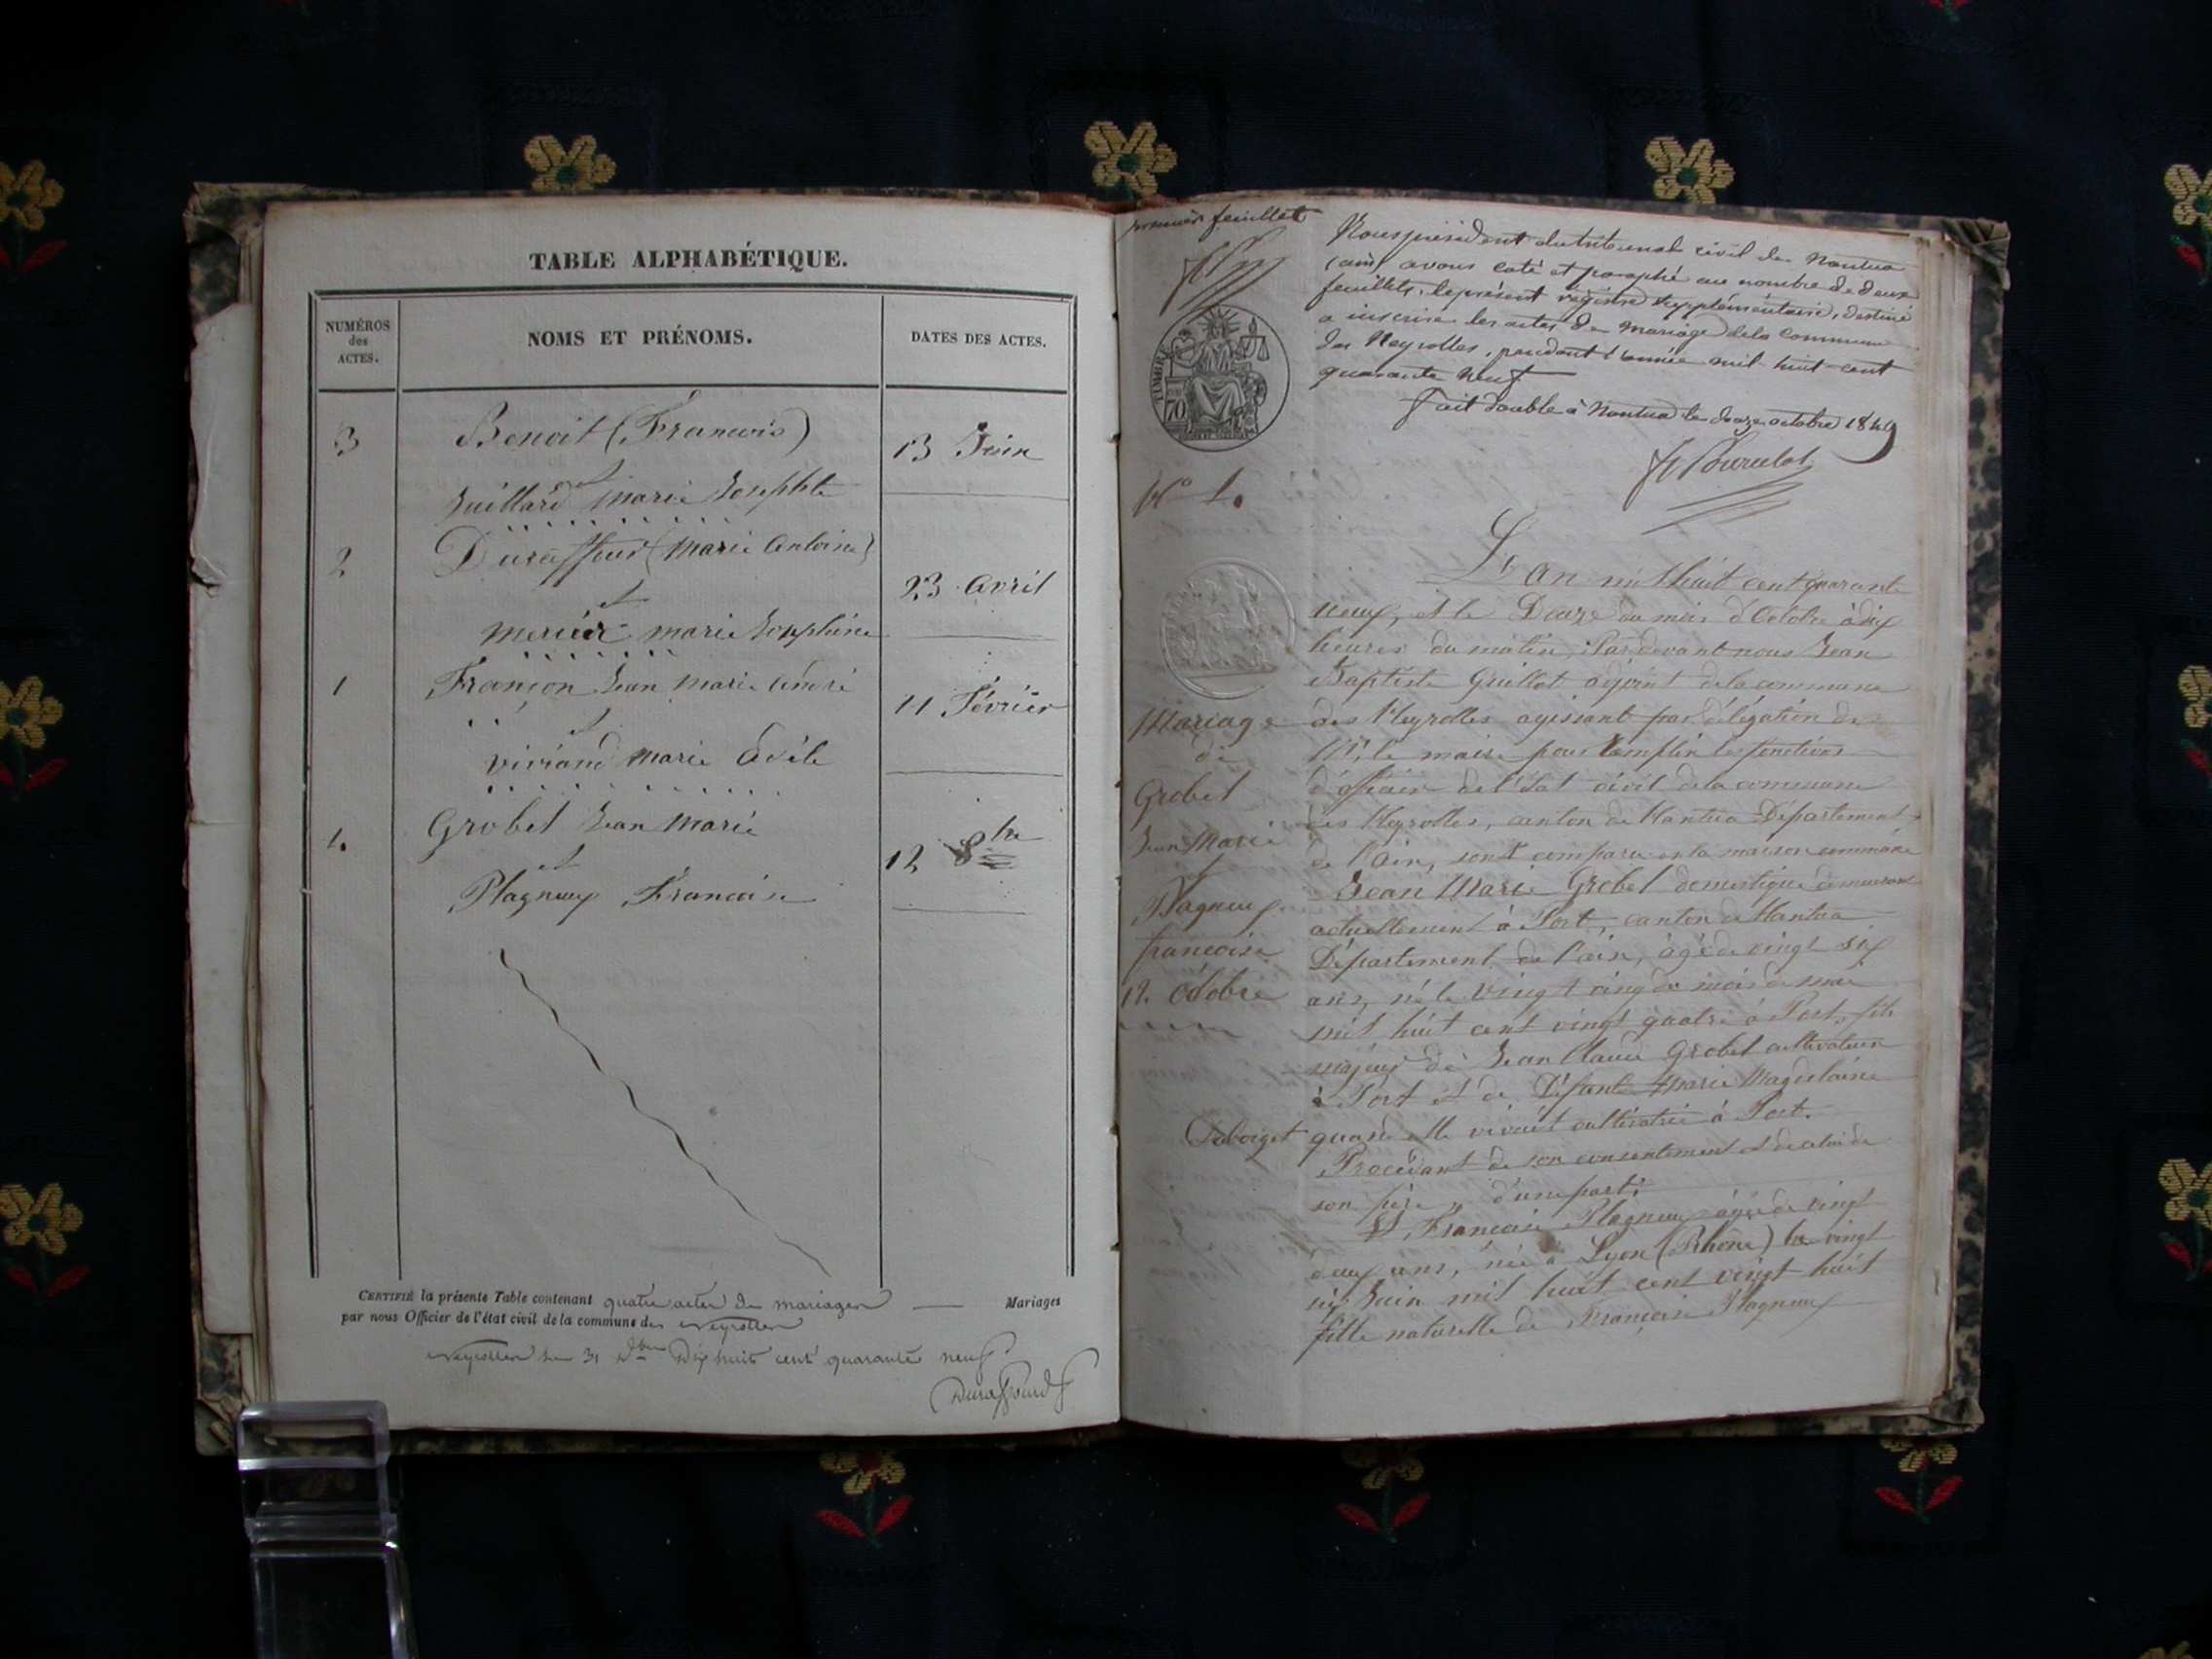 TABLE ALPHABÉTIQUE.
NUMÉROS
des
ACTES.
NOMS ET PRÉNOMS.
DATES DES ACTES.
3 Benoit (Francois) 13 Juin
et
Juillard Marie Josephte
2 Duraffour (Marie Antoine)
23 avril
et
mercier marie Josephine
1 Françon Jean Marie André
11 Février
et
viviand Marie Adèle
4. Grobel Jean Marie
12 8bre
et
Plagneux Francoise
CERTIFIÉ la présente Table contenant quatre actes de mariages Mariages
par nous Officier de l'état civil de la commune des Neyrolles
Neyrolles le 31 Xbre Dix huit cent quarante neuf
Duraffourd
premier feuillet
Nous président du tribunal civil de Nantua
(ain) avons coté et paraphé au nombre de deux
feuillets, le présent régistre supplémentaire, destiné
a inscrire les actes de Mariage de la commune
des Neyrolles, pendant l'année mil-huit-cent
quarante neuf
fait double à Nantua le douze octobre 1849
TIMBRE
70
N° 4.
L'an mil huit cent quarante
neuf, et le Douze du mois d'Octobre à dix
heures du matin, Pardevant nous Jean
Baptiste Guillot adjoint de la commune
des Neyrolles agissant par délégation de
Mr. le maire pour remplir les fonctions
d'officier de l'état civil de la commune
des Neyrolles, canton de Nantua Département
de l'ain, sont comparu en la maison commune
Mariage
de
Grobel
Jean Marie
et
Plagneux
francoise
12. octobre
Jean Marie Grobel domestique demeurant
actuellement à Port, canton de Nantua
Département de l'ain, âgé de vingt six
ans, né le vingt cinq du mois de mai
mil huit cent vingt quatre à Port, fils
majeur de Jean Claude Grobel cultivateur
à Port et de Défunte Marie Magdelaine
quand elle vivait cultivatrice à Port.
Procédant de son consentement et de celui de
son père, d'une part;
Et Francoise Plagneux âgée de vingt
deux ans, née à Lyon (Rhône) le vingt
six Juin mil huit cent vingt huit
fille naturelle de Francoise Plagneux